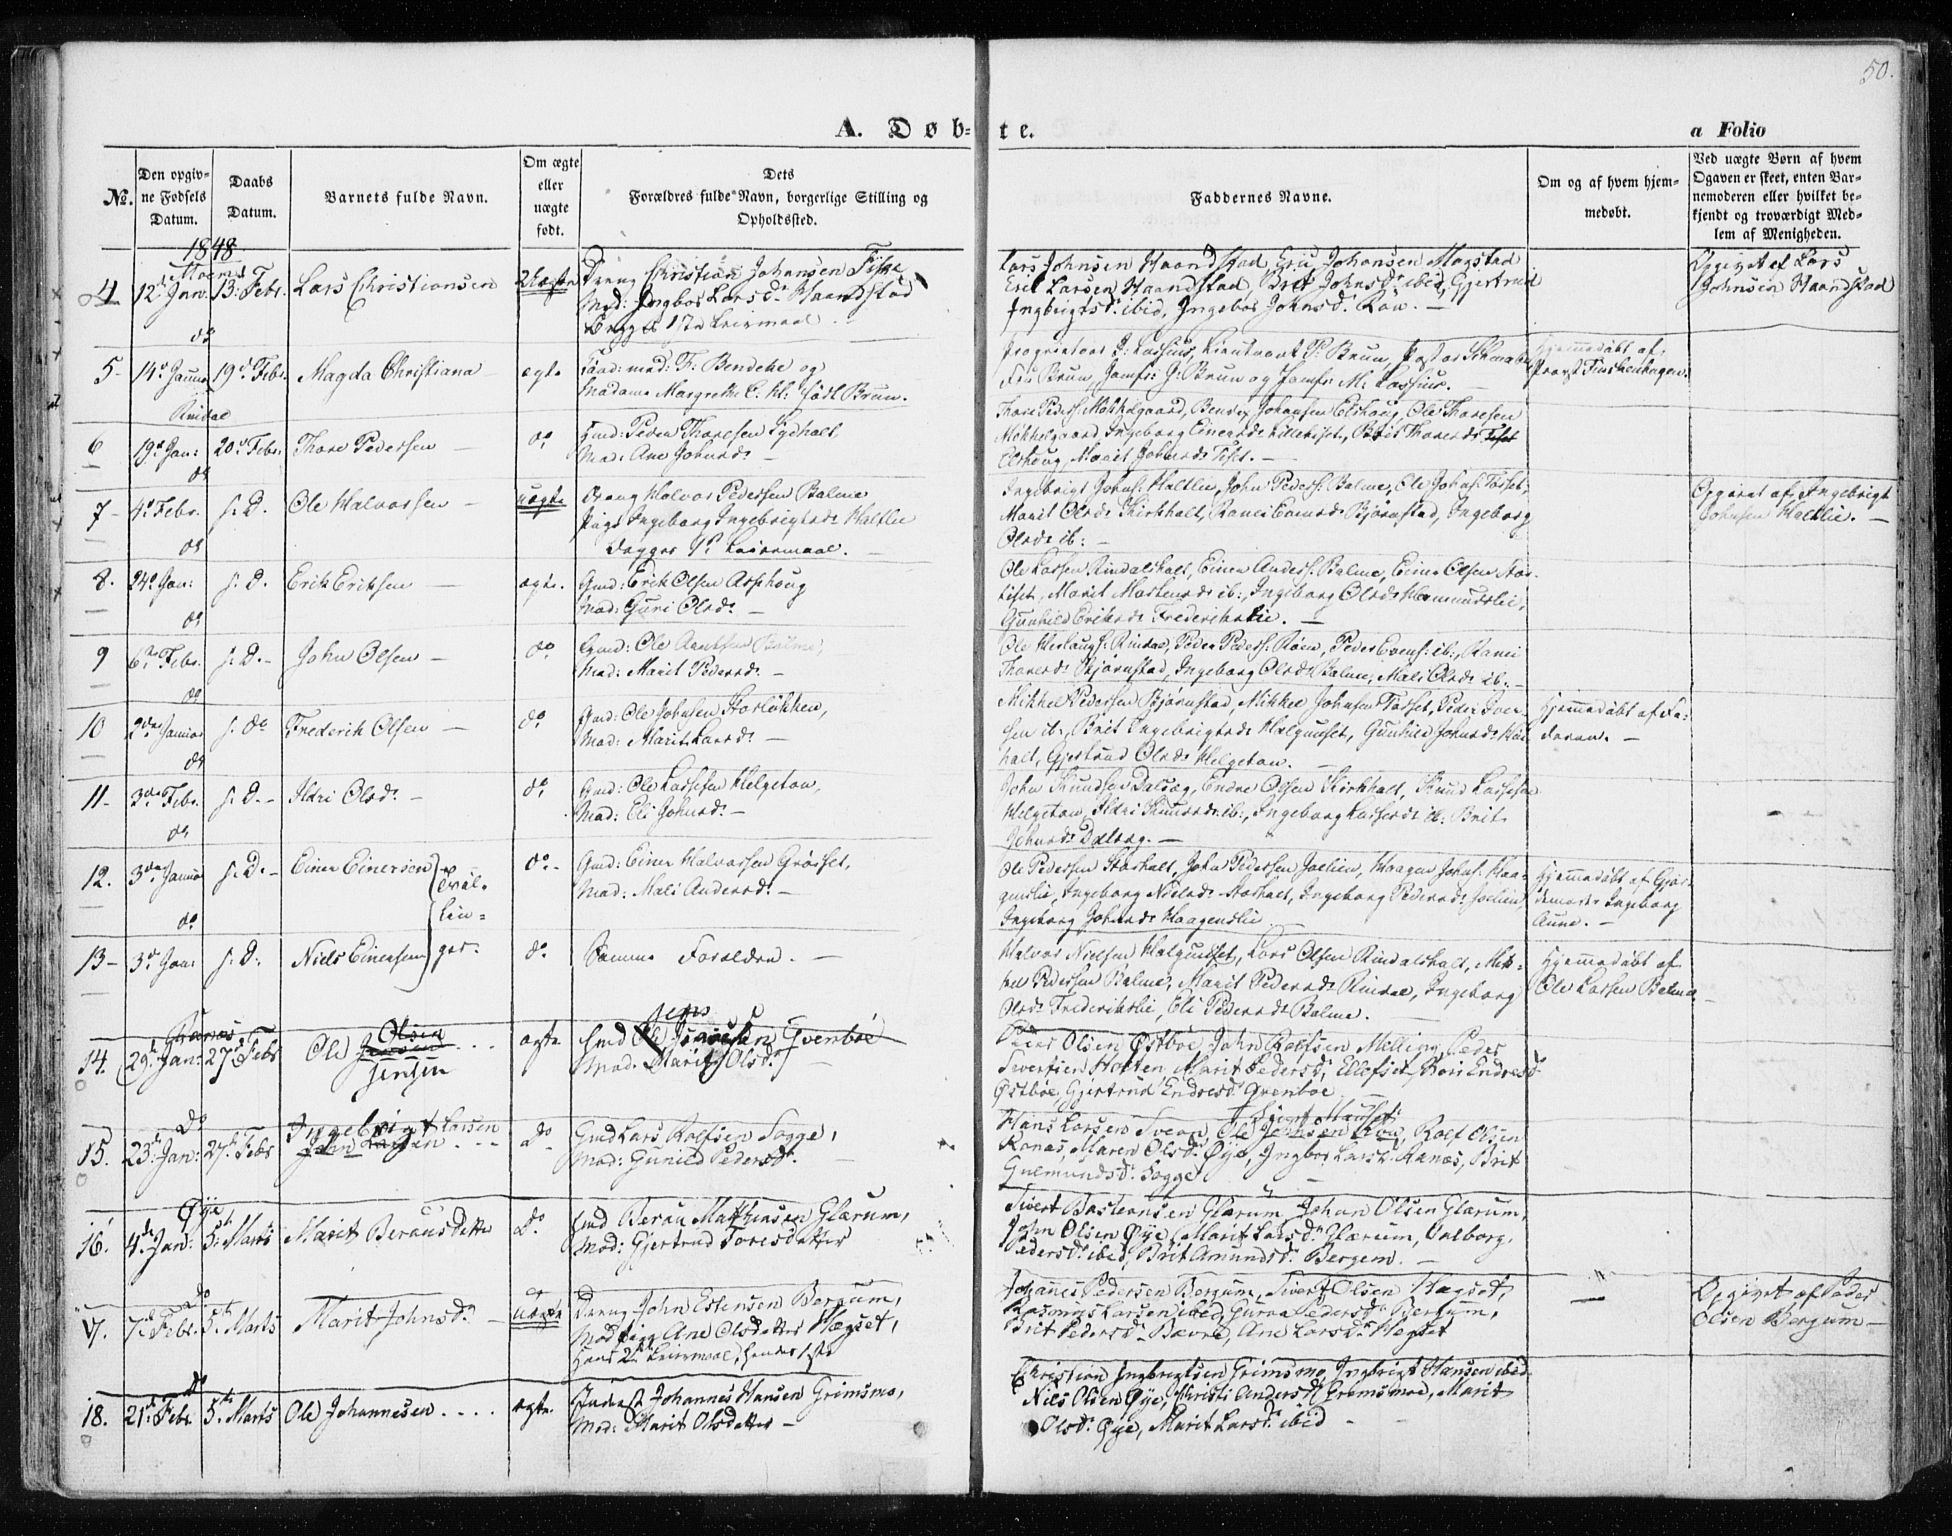 50.
A. Døb-te.
a Folio
No.
Den opgiv-
ne Fødsels
Datum.
Daabs
Datum.
Barnets fulde Navn.
Om ægte
eller
uægte
født.
Dets
Forældres fulde Navn, borgerlige Stilling og
Opholdssted.
Faddernes Navne.
Om og af hvem hjem-
medøbt.
Ved uægte Børn af hvem
Opgaven er skeet, enten Bar-
nemoderen eller hvilket be-
kjendt og troværdigt Med-
lem af Menigheden.
1848
4 12te Jan: 13: Febr. Lars Christiansen Uægte Dreng Christian Johansen Fiske
Mod: Ingbor Larsd. Haandstad
Begges 1ste Leiermaal.
Lars Johnsen Haandstad, Eric Johansen Mogstad
Eric Larsen Haandstad, Brit Johnsd. ibid, Gjertrud
Ingbrigtsd. ibid, Ingebor Johnsd. Røv.
Opgivet af Lars
Johnsen Haandstad
do
5 14de Januar 19de Febr. Magda Christiana ægte F. Bendeke og
Madame Margrethe C. M. født Brun.
Lieutnant P. Brun,
Fru Brun, Jomfr: J. Brun og Jomfr M. Lassius.
Hjemmedøbt af
Provst Finckenhagen.
Rindal
6 19de Jan: 20de Febr. Thore Pedersen do Gmd: Peder Thoresen
Mod: Ane Johnsd.
Thore Peders. Møkkelgaard, Bendix Johansen Elshoug, Ole Thoresen
Møkkelgaard, Ingeborg Einersd. Lillekiset, Brit Thoresd. Tiset
Elshoug, Marit Johnsd. Tiset.
do
7 4de Febr. s. D. Ole Halvorsen uægte Dreng Halvor Pedersen Bolme
Pige Ingeborg Ingebrigtsd. Haltlie
Begges 1ste Leiermaal.
Ingebrigt Johns. Haltlie, John Peders. Bolme, Ole Johns. Tørset,
Marit Olsd. Kirkholt, Ranei Einersd. Bjørnstad, Ingeborg
Olsd. ib:
Opgivet af Ingebrigt
Johnsen Haltlie.
do
8. 24de Jan: s. D. Erik Eriksen ægte. Gmd: Erik Olsen Asphoug
Mod: Guri Olsd.
Ole Larsen Rindalsholt, Einer Anders. Bolme, Einer Olsen Stor-
kiset, Marit Mortensd. ib:, Ingeborg Olsd. Hammundslie,
Gunhild Eriksd. Frederikslie.
do
9 6te Febr. s. D. John Olsen do Gmd: Ole Bolme,
Mod: Marit Pedersd.
Ole Herlaugs. Rindal, Peder Peders. Røen, Peder Evens. ib:, Ranei
Thoresd. Bjørnstad, Ingeborg Olsd. Bolme, Mali Olsd. ib.
do
10 2den Januar s. do Frederik Olsen do Gmd: Ole Johnsen Storløkken,
Mod: Marit Larsd.
Mikkel Pedersen Bjørnstad, Mikkel Johnsen Tørset, Peder Iver-
sen ib., Brit Ingebrigtsd. Halgunset, Gunhild Johnsd.
holt, Gjertrud Olsd. Helgeton.
Hjemmedøbt af Fa-
deren.
do
11 3die Febr. s. D. Ildri Olsd. do Gmd: Ole Larssen Helgeton,
Mod: Eli Johnsd.
John Knudsen Dalsæg, Endre Olsen Kirkholt, Knud Larssen
Helgeton, Ildri Knudsd. ib:, Ingeborg Larsesd. ib: Brit
Johnsd. Dalsæg.
do
12. 3die Januar s. D. Einer Einersen do Gmd: Einer Halvorsen Grøsset,
Mod: Mali Andersd.
Tvil-
lin-
ger.
Ole Pedersen Storholt, John Pedersen Joelien, Haagen Johns. Haa-
genslie, Ingeborg Nielsd. Storholt, Ingeborg Pedersd. Joelien,
Ingeborg Johnsd. Haagenslie
Hjemmedøbt af Gjor-
demoder Ingeborg
Aune.
do
13 3die Jan: s. D. Niels Einersen do Samme Forældre.
Halvor Nielsen Halgunset, Lars Olsen Rindalsholt, Mik-
kel Pedersen Bolme, Marit Pedersd. Rindal, Ingeborg
Olsd. Frederikslie, Eli Pedersd. Bolme.
Hjemmedøbt af
Ole Larsen Bolme
Ranæs
14. 29de Jan: 27de Febr Ole Olsen
Jensen ægte Gmd Ole Jens Gvenboe
Mod. Marit Olsd.
Peder Olsen Østboe, John Rolfsen Melling, Peder
Sivertsen Holten, Marit Pedersd. Ellefset, Kari Endresd.
Østbøe, Gjertrud Endresd. Qvenboe
Do
15. 23de Jan: 27de Febr Ingebrigt Larsen Do Gmd Lars Rolfsen Sogge,
Mod: Gunild Pedersd.
Hans Larsen Svean, Rolf Olsen
Ranæs, Maren Olsd. Øye, Ingbor Larsd. Ranæs, Brit
Gulmundsd. Sogge
Øye
16. 4de Jan: 5te Marts Marit Berausdatter Do Gmd Berau Mathiassen Glærum,
Mod: Gjertrud Toresdatter
Sivert Bastiansen Glærum, Johan Olsen Glærum,
John Olsen Øye, Marit Larsd. Glærum, Valborg
Pedersd. ibid, Brit Amundsd. Bergem.
Do
17. 7de Febr. 5te Marts Marit Johnsd. uægte Dreng John Estensen Bergum,
Mod: Pige Ane Olsdatter Hægset,
Hans 2det Leiermaal, hendes 1ste
Johanes Pedersen Bergum, Sivert Olsen Hægset,
Rasmus Larsen ibid, Guroe Pedersd. Bergum,
Brit Pedersd. Bævre, Ane Larsd. Hegset
Opgivet af Peder
Olsen Bergum
Do
18. 21de Febr. 5te Marts Ole Johannesen ægte. Inderst Johannes Hansen Grimsmo,
Mod: Marit Olsdatter
Christian Ingbrigtsen Grimsmo, Ingbrigt Hansen ibid
Nils Olsen Øye, Kirsti Andersd. Grimsmo, Marit
Olsd. Øye, Marit Larsd. ibid